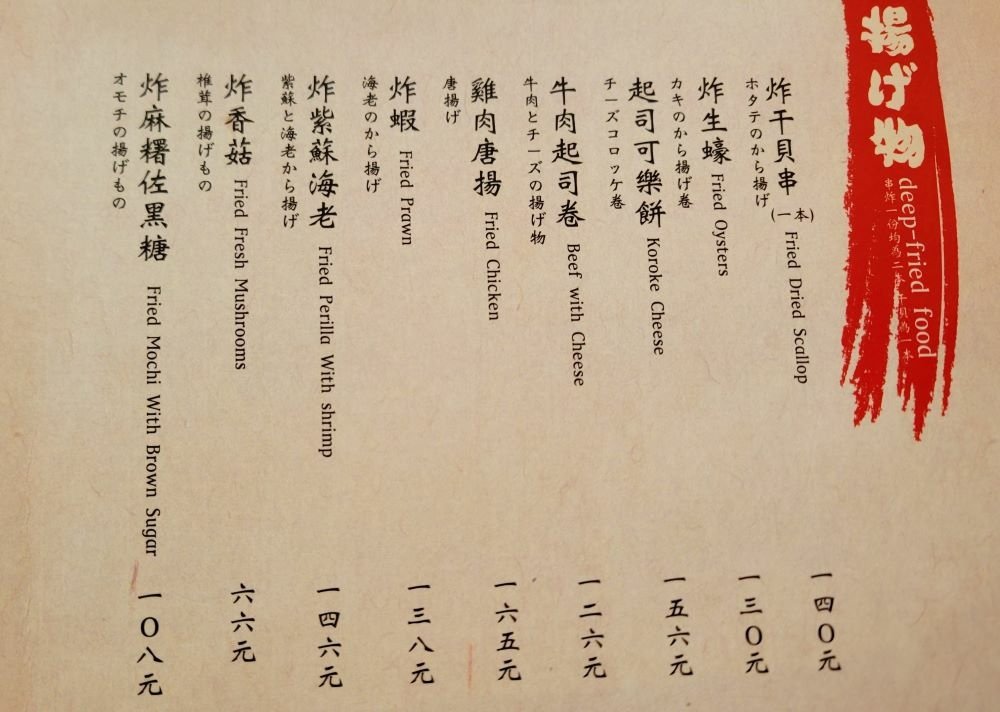 揚げ物
deep-fried food
串炸一份均為二本 干貝為一本
炸干貝串(一本) Fried Dried Scallop 一四〇元
ホタテのから揚げ
炸生蠔 Fried Oysters 一三〇元
カキのから揚げ巻
起司可樂餅 Koroke Cheese 一五六元
チーズコロッケ巻
牛肉起司卷 Beef with Cheese 一二六元
牛肉とチーズの揚げ物
雞肉唐揚 Fried Chicken 一六五元
唐揚げ
炸蝦 Fried Prawn 一三八元
海老のから揚げ
炸紫蘇海老 Fried Perilla With shrimp 一四六元
紫蘇と海老から揚げ
炸香菇 Fried Fresh Mushrooms 六六元
椎茸の揚げもの
炸麻糬佐黑糖 Fried Mochi With Brown Sugar 一〇八元
オモチの揚げもの